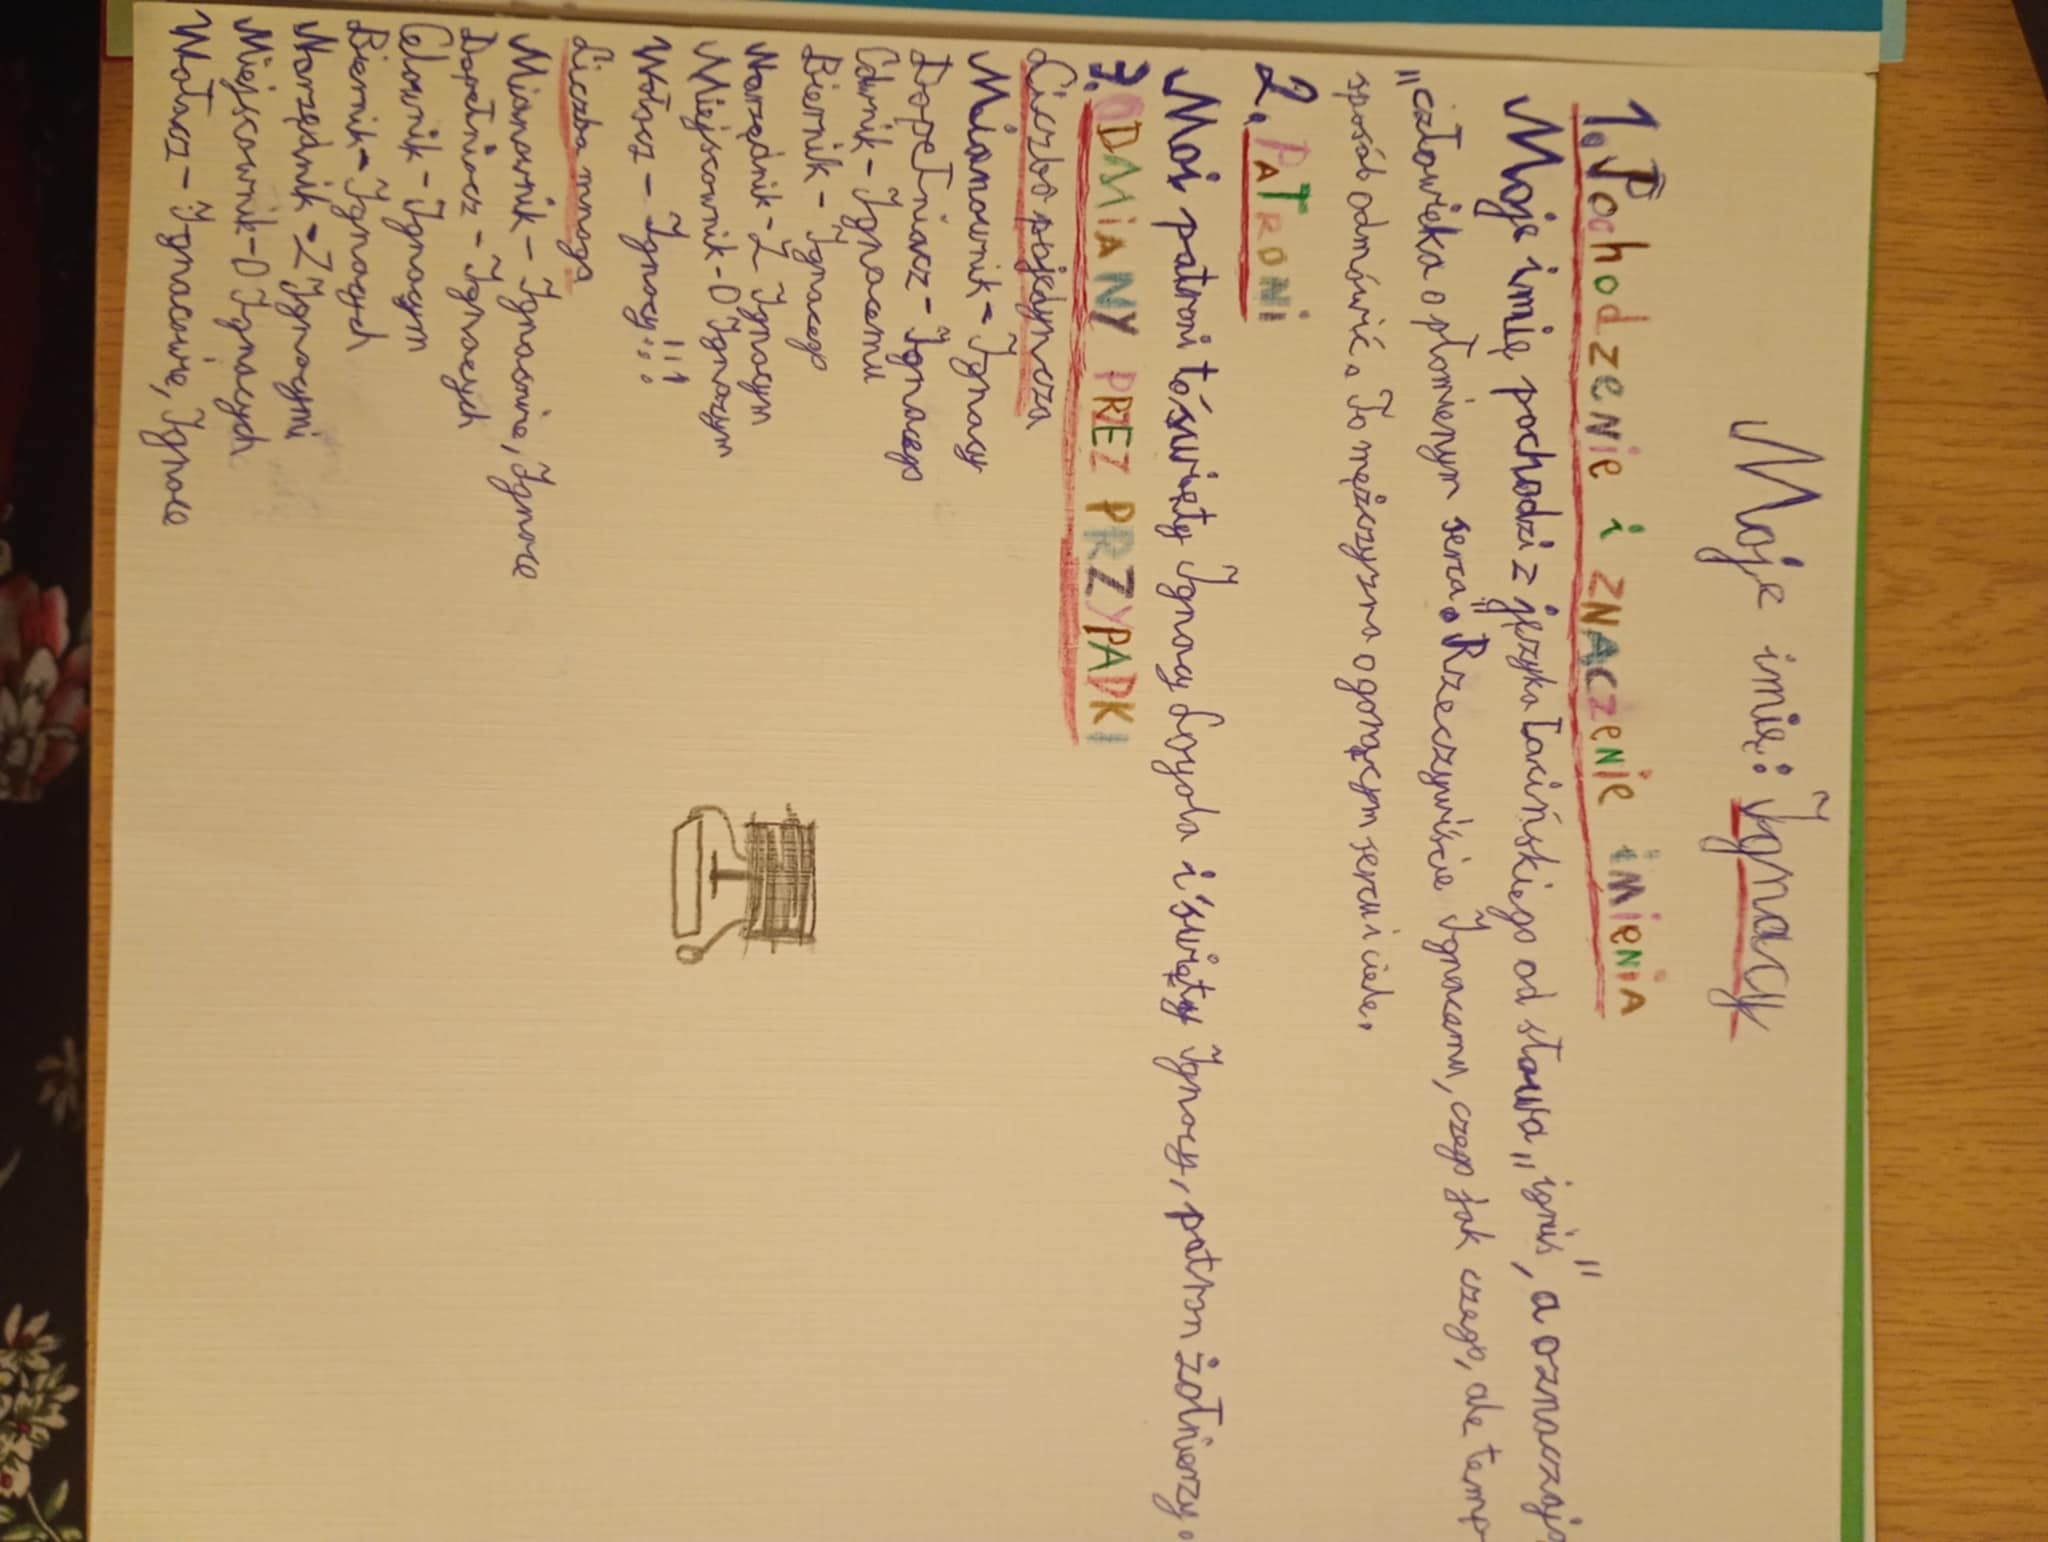 Moje imię: Ignacy
1. Pochodzenie i znaczenie imienia
Moje imię pochodzi z języka łacińskiego od słowa „ignis", a oznacza
„człowieka o płomiennym sercu." Rzeczywiście Ignacemu, czego jak czego, ale temp
sposób odmówić. To mężczyzna o gorącym sercu i ciele.
2. PATRONI
Moi patroni to święty Ignacy Loyola i święty Ignacy, patron żołnierzy.
3. ODMIANY PRZEZ PRZYPADKI
Liczba pojedyncza
Mianownik - Ignacy
Dopełniacz - Ignacego
Celownik - Ignacemu
Biernik - Ignacego
Narzędnik - Z Ignacym
Miejscownik - O Ignacym
Wołacz - Ignacy!!!
Liczba mnoga
Mianownik - Ignacowie, Ignace
Dopełniacz - Ignacych
Celownik - Ignacym
Biernik - Ignacych
Narzędnik - Z Ignacymi
Miejscownik - O Ignacych
Wołacz - Ignacowie, Ignace